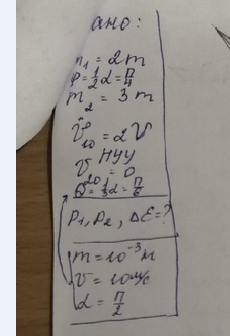 ано:
m₁ = 2m
φ = ½α = π/4
m₂ = 3m
v₁₀ = 2v
НУУ
v₂₀ = 0
θ = ⅓α = π/6
P₁, P₂, ΔE = ?
m = 10⁻³ кг
v = 10 м/с
α = π/2